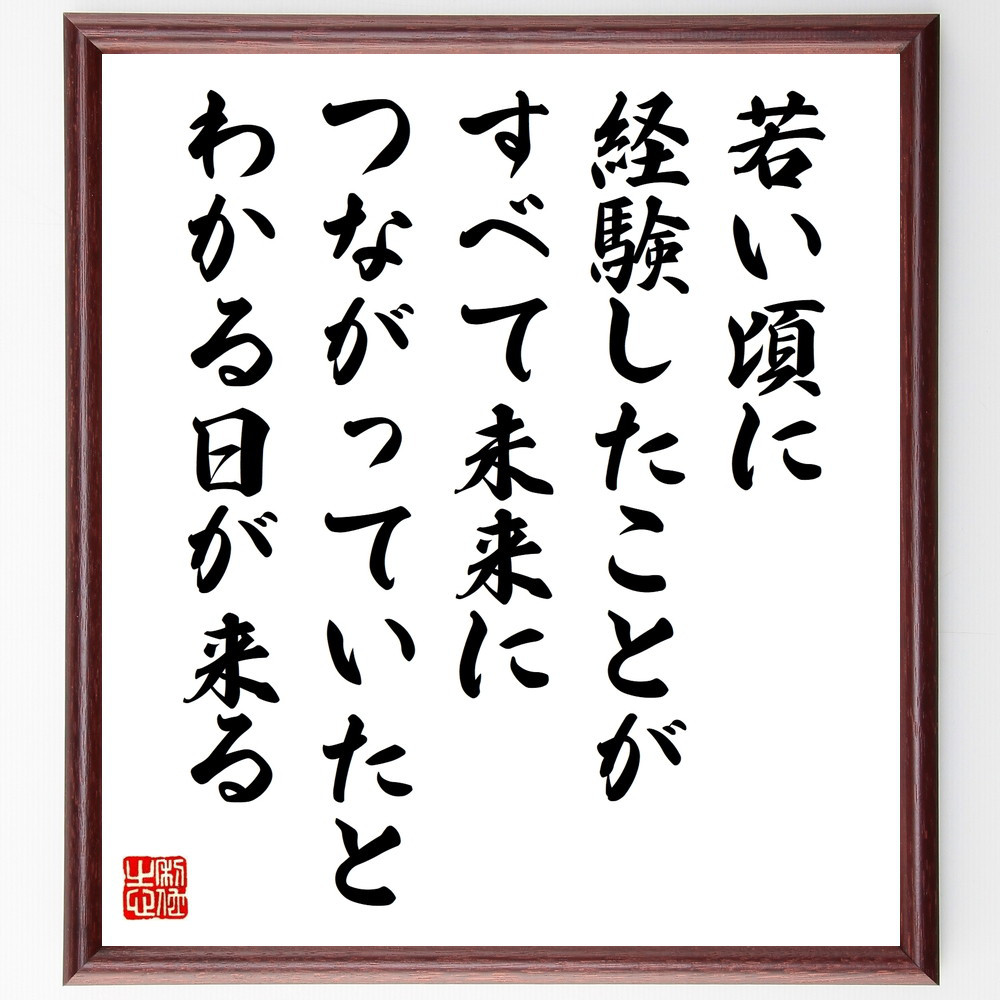 若い頃に
経験したことが
すべて未来に
つながっていたと
わかる日が来る